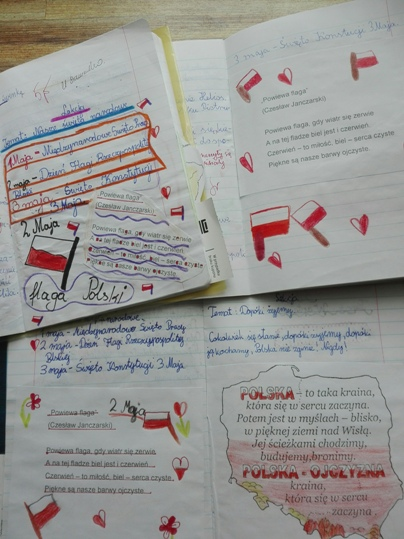 Temat: Nasze święta narodowe
1 Maja - Międzynarodowe Święto Pracy
2 maja - Dzień Flagi Rzeczypospolitej
3 maja - Święto Konstytucji
3 Maja
2 Maja
flaga Polski
„Powiewa flaga”
(Czesław Janczarski)
Powiewa flaga, gdy wiatr się zerwie
na tej fladze biel jest i czerwień
Czerwień – to miłość, biel – serca czyste
Piękne są nasze barwy ojczyste.
3 maja - Święto Konstytucji 3 Maja.
„Powiewa flaga”
(Czesław Janczarski)
Powiewa flaga, gdy wiatr się zerwie
A na tej fladze biel jest i czerwień.
Czerwień – to miłość, biel – serca czyste
Piękne są nasze barwy ojczyste.
1 maja - Międzynarodowe Święto Pracy
2 maja - Dzień Flagi Rzeczypospolitej
Polskiej
3 maja - Święto Konstytucji 3 Maja
„Powiewa flaga”
2 Maja
(Czesław Janczarski)
Powiewa flaga, gdy wiatr się zerwie
A na tej fladze biel jest i czerwień
Czerwień – to miłość, biel – serca czyste
Piękne są nasze barwy ojczyste.
Temat: Dopóki żyjemy.
Cokolwiek się stanie, dopóki żyjemy, dopóki
ją kochamy, Polska nie zginie! Nigdy!
POLSKA – to taka kraina,
która się w sercu zaczyna.
Potem jest w myślach – blisko,
w pięknej ziemi nad Wisłą.
Jej ścieżkami chodzimy,
budujemy, bronimy.
POLSKA - OJCZYZNA
kraina,
która się w sercu
zaczyna